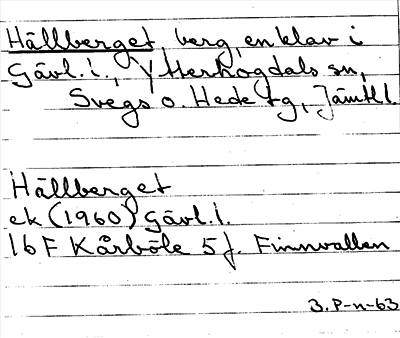 Hällberget, berg, enklav i
Gävl. l., Ytterhogdals sn,
Svegs o. Hede tg, Jämtl l.
Hällberget
ek (1960) Gävl. l.
16 F Kårböle 5 f. Finnvallen
3. P-n-63